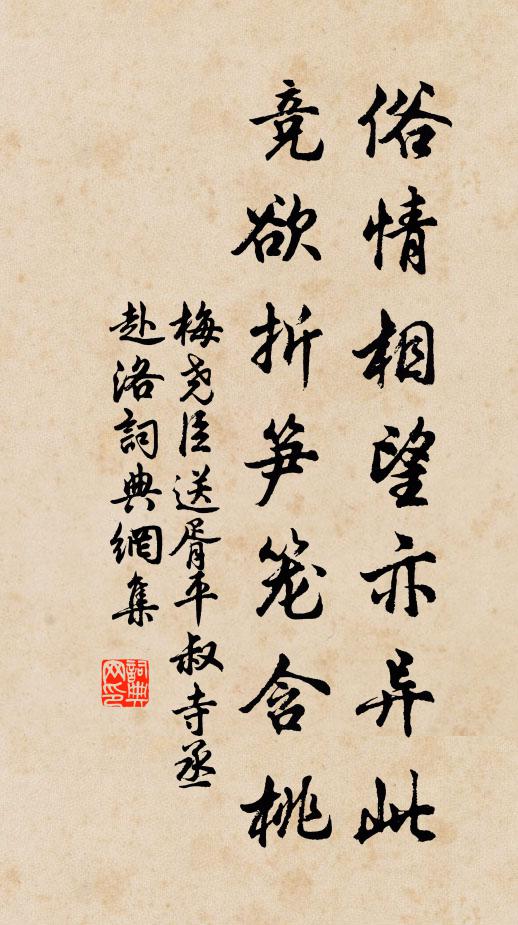 俗情相望亦异此
竞欲折笋笼含桃
梅尧臣送胥平叔寺丞
赴洛詞典網集
詞典网印